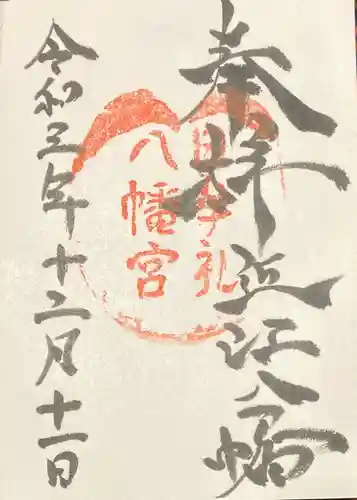 奉拝 近江八幡
日牟礼
八幡宮
令和三年十二月十一日